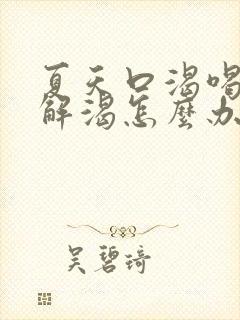 夏天口渴喝
解渴怎麼办
吴碧琦